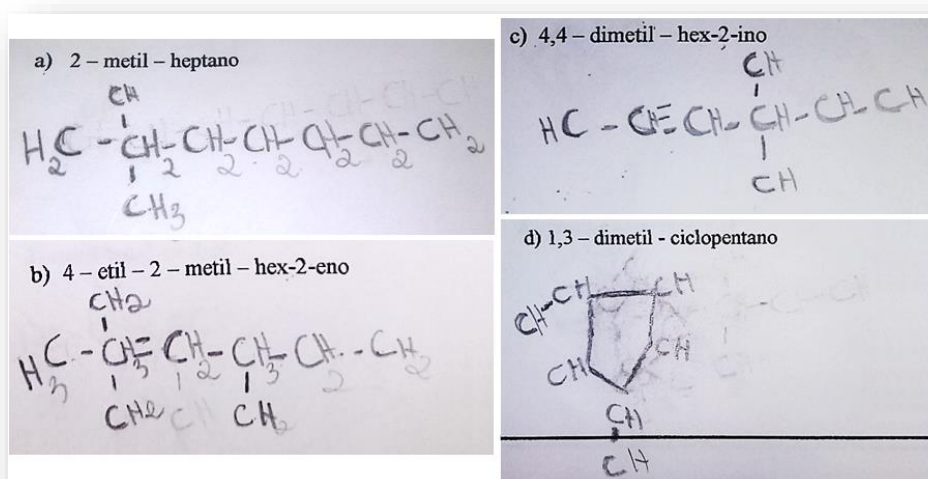 a) 2 – metil – heptano
CH
H₂C - CH₂ - CH₂ - CH₂ - CH₂ - CH₂ - CH₂
CH₃
b) 4 – etil – 2 – metil – hex-2-eno
CH2
H₃C - CH₃ = CH₂ - CH₃ - CH₂ - CH₂
CH2 CH CH₂
c) 4,4 – dimetil – hex-2-ino
CH
HC - CH ≡ CH - CH - CH - CH
CH
d) 1,3 – dimetil - ciclopentano
CH - CH CH
CH CH
CH
CH